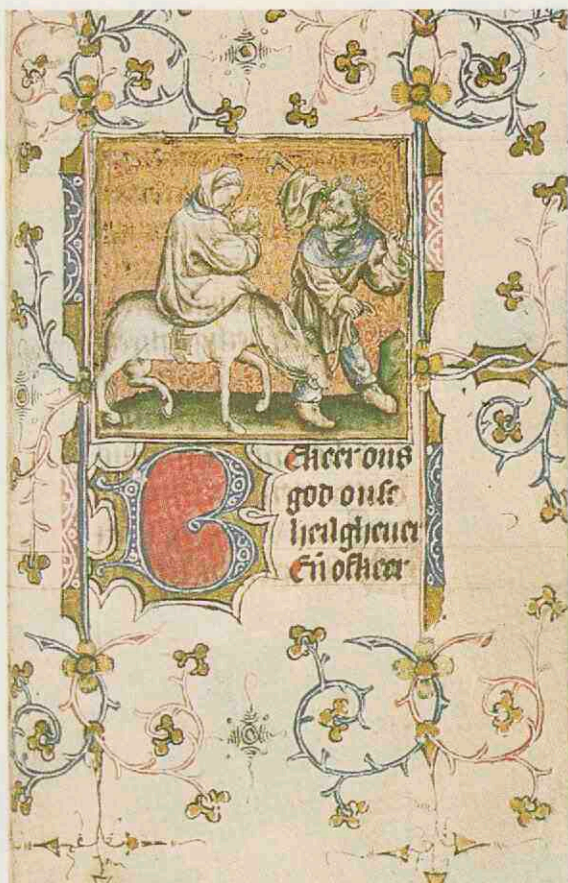 Bekeer ons
god onse
heilgheuer
Eñ ofkeer